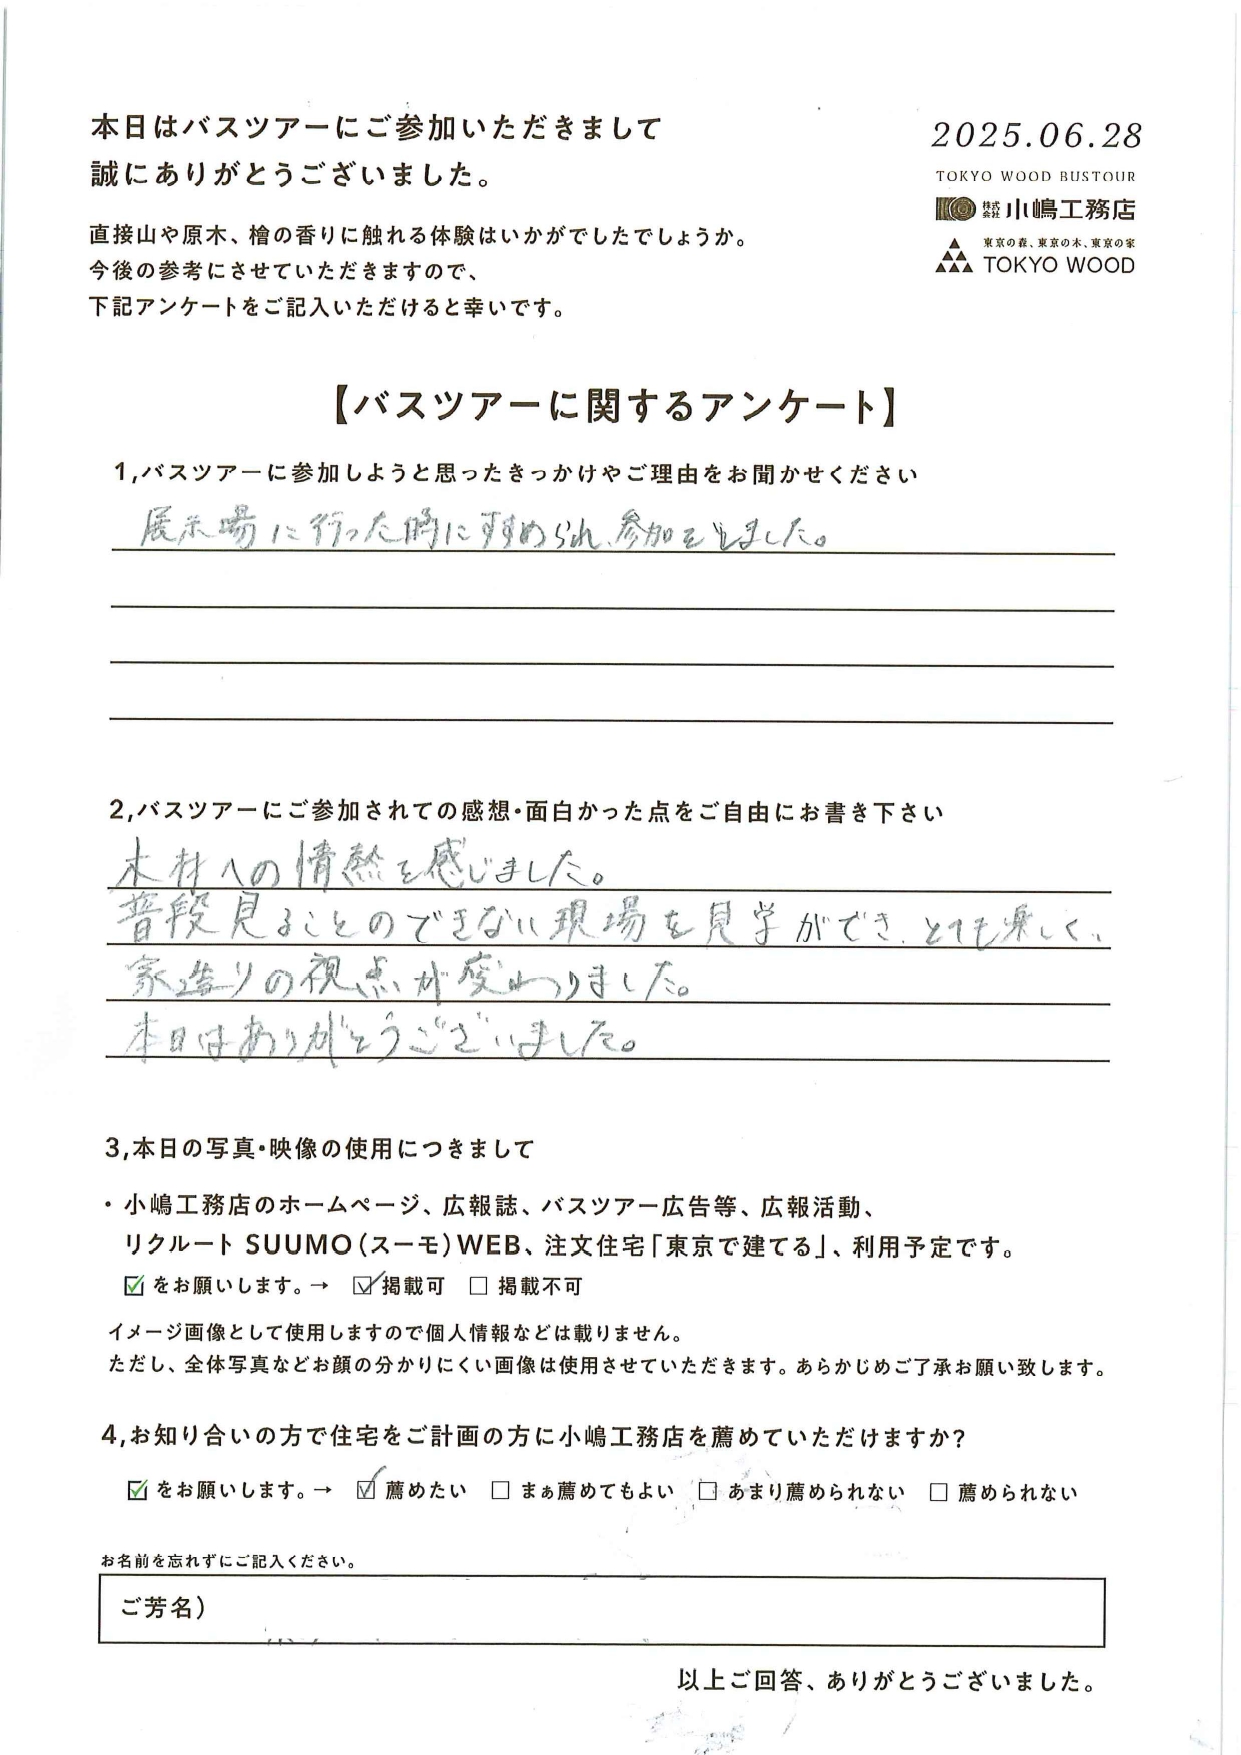 本日はバスツアーにご参加いただきまして
誠にありがとうございました。
2025.06.28
TOKYO WOOD BUSTOUR
株式会社 小嶋工務店
東京の森、東京の木、東京の家
TOKYO WOOD
直接山や原木、檜の香りに触れる体験はいかがでしたでしょうか。
今後の参考にさせていただきますので、
下記アンケートをご記入いただけると幸いです。
【バスツアーに関するアンケート】
1,バスツアーに参加しようと思ったきっかけやご理由をお聞かせください
展示場に行った時にすすめられ、参加をしました。
2,バスツアーにご参加されての感想・面白かった点をご自由にお書き下さい
木材への情熱を感じました。
普段見ることのできない現場を見学ができ、とても楽しく、
家造りの視点が変わりました。
本日はありがとうございました。
3,本日の写真・映像の使用につきまして
・小嶋工務店のホームページ、広報誌、バスツアー広告等、広報活動、
リクルート SUUMO(スーモ)WEB、注文住宅「東京で建てる」、利用予定です。
☑をお願いします。→ ☑掲載可 □ 掲載不可
イメージ画像として使用しますので個人情報などは載りません。
ただし、全体写真などお顔の分かりにくい画像は使用させていただきます。あらかじめご了承お願い致します。
4,お知り合いの方で住宅をご計画の方に小嶋工務店を薦めていただけますか?
☑をお願いします。→ ☑ 薦めたい □ まぁ薦めてもよい □ あまり薦められない □ 薦められない
お名前を忘れずにご記入ください。
ご芳名)
以上ご回答、ありがとうございました。